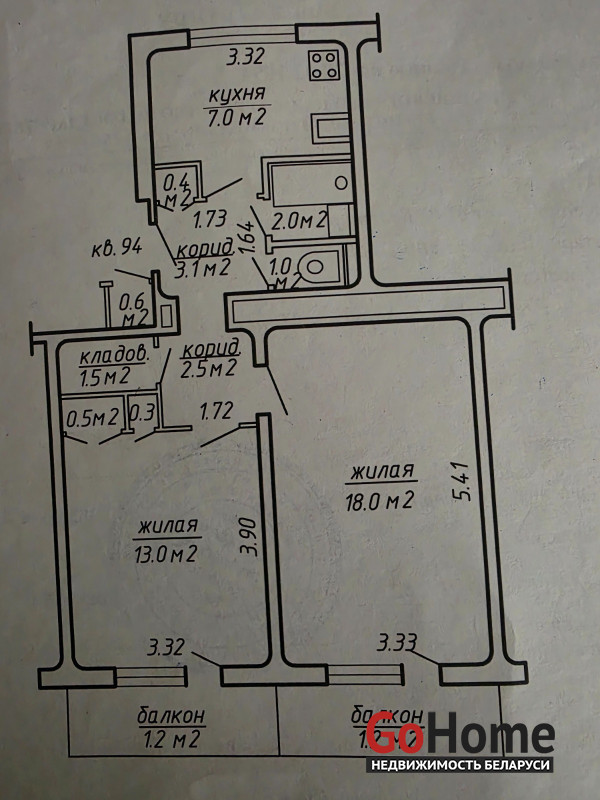 3.32
кухня
7.0 м2
0.4
м2
1.73
1.64
2.0м2
кв. 94
корид.
3.1м2
1.0
м2
0.6
м2
кладов.
1.5м2
корид.
2.5м2
0.5м2
0.3
1.72
жилая
18.0 м2
5.41
жилая
13.0м2
3.90
3.32
3.33
балкон
1.2 м2
балкон
1.2 м2
GoHome
НЕДВИЖИМОСТЬ БЕЛАРУСИ